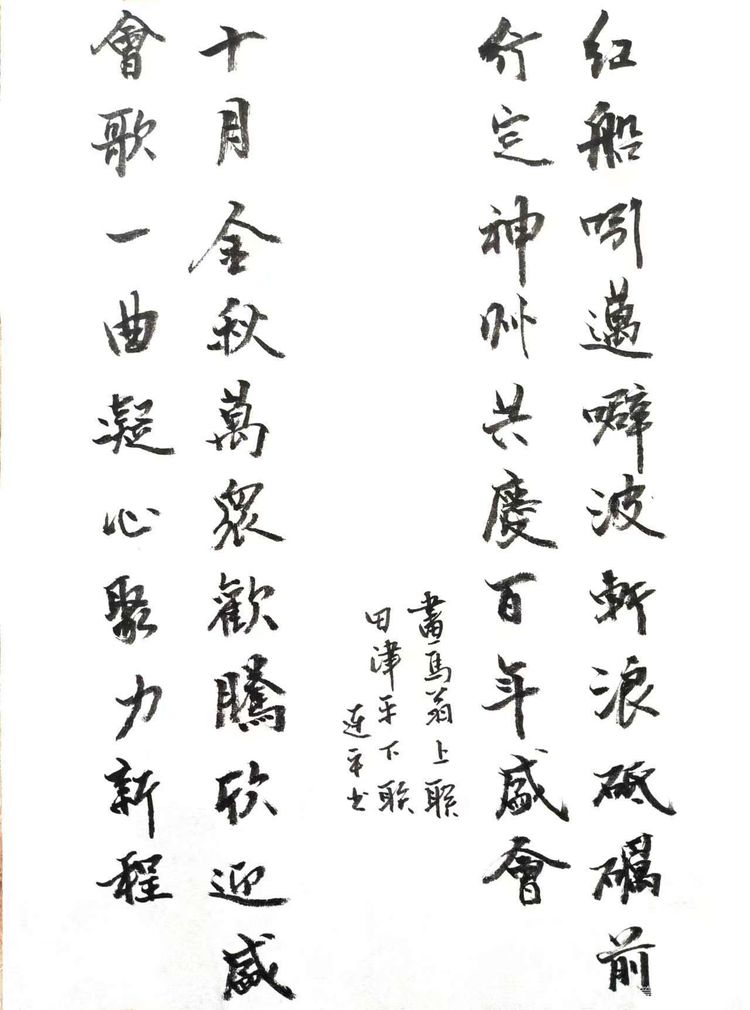 红船吲邁噼波斬浪砥礪前
行定神州共慶百年盛會
畫馬翁上联
田津平下联
連平书
十月金秋萬眾歡騰欣迎盛
會歌一曲凝心聚力新程